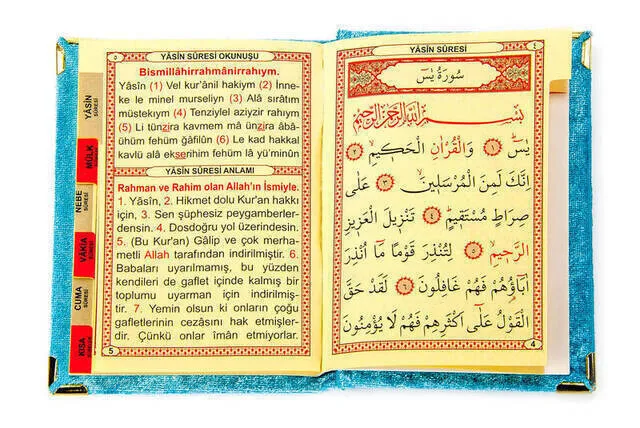 ٥ YÂSİN SÛRESİ OKUNUŞU
Bismillâhirrahmânirrahıym.
Yâsîn (1) Vel kur'ânil hakiym (2) İnne-
ke le minel murseliyn (3) Alâ sırâtım
müstekıym (4) Tenziylel aziyzir rahıym
(5) Li tünzira kavmem mâ ünzira âbâ-
ühüm fehüm gâfilûn (6) Le kad hakkal
kavlü alâ ekserihim fehüm lâ yü'minûn
YÂSİN SÛRESİ ANLAMI
Rahman ve Rahim olan Allah'ın İsmiyle.
1. Yâsîn, 2. Hikmet dolu Kur'an hakkı
için, 3. Sen şüphesiz peygamberler-
densin. 4. Dosdoğru yol üzerindesin.
5. (Bu Kur'an) Gâlip ve çok merha-
metli Allah tarafından indirilmiştir. 6.
Babaları uyarılmamış, bu yüzden
kendileri de gaflet içinde kalmış bir
toplumu uyarman için indirilmiş-
tir. 7. Yemin olsun ki onların çoğu
gafletlerinin cezasını hak etmişler-
dir. Çünkü onlar îmân etmiyorlar.
5
YÂSİN
SÛRESİ
MÜLK
SÛRESİ
NEBE
SÛRESİ
VÂKIA
SÛRESİ
CUMA
SÛRESİ
KISA
SÛRELER
YÂSİN SÛRESİ ٤
سُورَةُ يٰسٓ
بِسْمِ اللّٰهِ الرَّحْمٰنِ الرَّحِيمِ
يٰسٓ ﴿١﴾ وَالْقُرْاٰنِ الْحَكِيمِ ﴿٢﴾
اِنَّكَ لَمِنَ الْمُرْسَلِينَ ﴿٣﴾ عَلٰى
صِرَاطٍ مُسْتَقِيمٍ ﴿٤﴾ تَنْزِيلَ الْعَزِيزِ
الرَّحِيمِ ﴿٥﴾ لِتُنْذِرَ قَوْمًا مَا اُنْذِرَ
اٰبَاؤُهُمْ فَهُمْ غَافِلُونَ ﴿٦﴾ لَقَدْ حَقَّ
الْقَوْلُ عَلٰى اَكْثَرِهِمْ فَهُمْ لَا يُؤْمِنُونَ
4